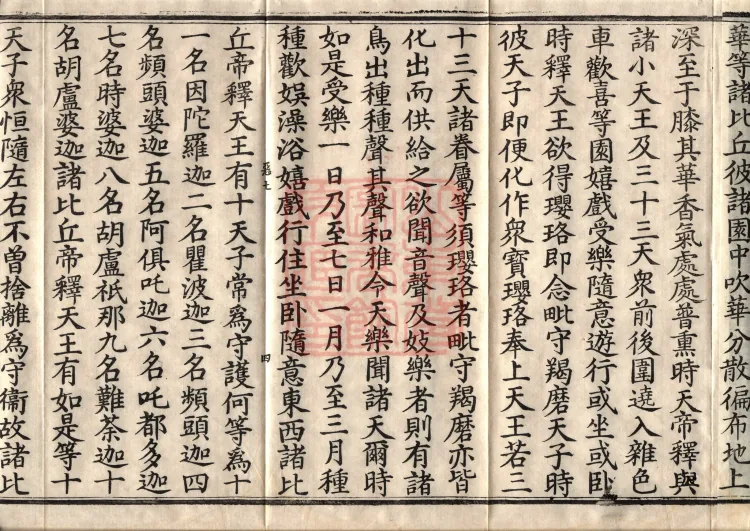 華等諸比丘彼諸園中吹華分散徧布地上
深至于膝其華香氣處處普熏時天帝釋與
諸小天王及三十三天衆前後圍遶入雜色
車歡喜等園嬉戲受樂隨意遊行或坐或卧
時釋天王欲得瓔珞即念毗守羯磨天子時
彼天子即便化作衆寶瓔珞奉上天王若三
十三天諸眷屬等須瓔珞者毗守羯磨亦皆
化出而供給之欲聞音聲及妓樂者則有諸
鳥出種種聲其聲和雅令天樂聞諸天爾時
如是受樂一日乃至七日一月乃至三月種
種歡娛澡浴嬉戲行住坐卧隨意東西諸比
四
丘帝釋天王有十天子常爲守護何等爲十
一名因陀羅迦二名瞿波迦三名頻頭迦四
名頻頭婆迦五名阿俱吒迦六名吒都多迦
七名時婆迦八名胡盧祇那九名難荼迦十
名胡盧婆迦諸比丘帝釋天王有如是等十
天子衆恒隨左右不曾捨離爲守衞故諸比